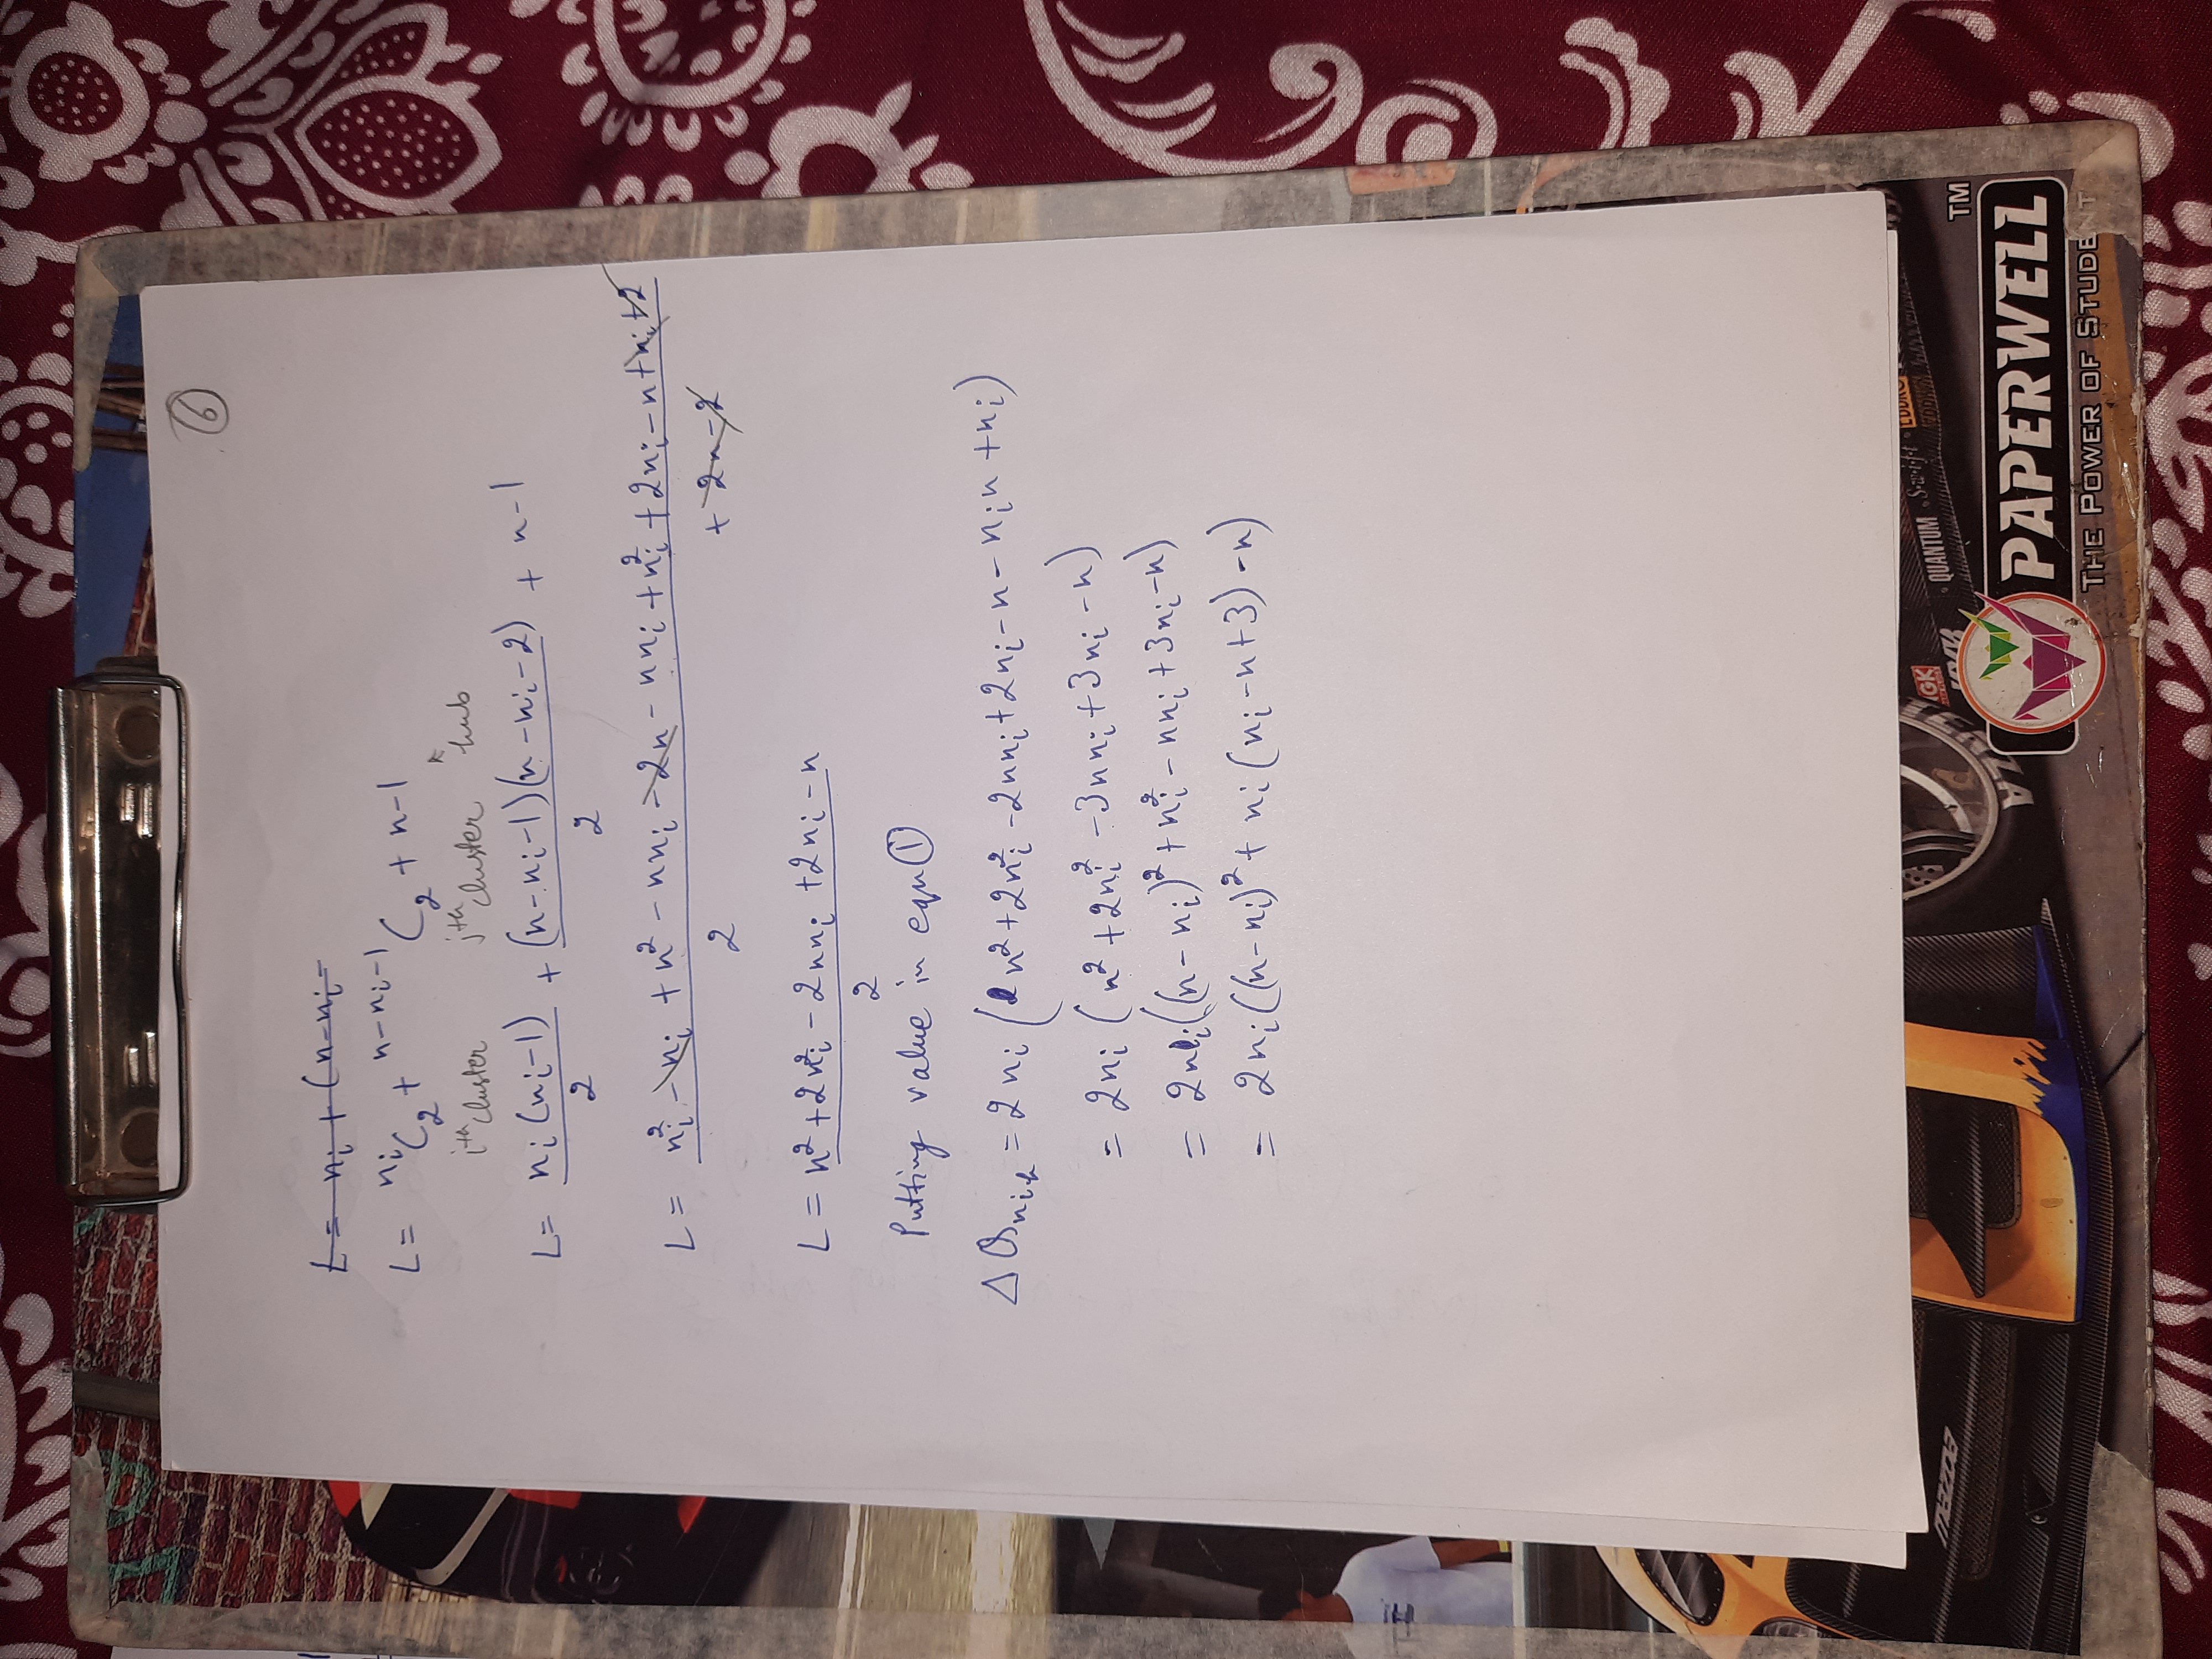 ⑥
L = nᵢ + (n-nᵢ-
L = ⁿⁱC₂ + ⁿ⁻ⁿⁱ⁻¹C₂ + n-1
iᵗʰ cluster jᵗʰ cluster ↖ hub
L = nᵢ(nᵢ-1)/2 + (n-nᵢ-1)(n-nᵢ-2)/2 + n-1
L = nᵢ² - nᵢ + n² - nnᵢ - 2n - nnᵢ + nᵢ² + 2nᵢ - n + nᵢ + 2
+ 2n - 2
2
L = n² + 2nᵢ² - 2nnᵢ + 2nᵢ - n
2
Putting value in equn ①
= 2nᵢ (n² + 2nᵢ² - 2nnᵢ + 2nᵢ - n - nᵢn + nᵢ)
= 2nᵢ (n² + 2nᵢ² - 3nnᵢ + 3nᵢ - n)
= 2nᵢ((n-nᵢ)² + nᵢ² - nnᵢ + 3nᵢ - n)
= 2nᵢ((n-nᵢ)² + nᵢ(nᵢ - n + 3) - n)
mazda
QUANTUM
Swift
TM
PAPERWELL
THE POWER OF STUDENT